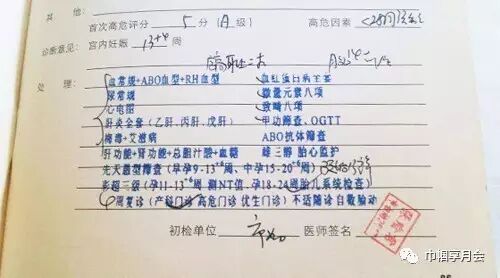 其 他：
首次高危评分 5 分（A 级） 高危因素
诊断意见：宫内妊娠 13+4 周
处 理：
血常规+ABO血型+RH血型 血红蛋白病主套
尿常规 微量元素八项
心电图 致畸八项
肝炎全套（乙肝、丙肝、戊肝） 甲功筛查、OGTT
梅毒+艾滋病 ABO抗体筛查
肝功能+肾功能+总胆汁酸+血糖 雌三醇 胎心监护
先天愚型筛查（早孕9-13+6周、中孕15-20+6周）
彩超三级（孕11-13+6周 测NT值、孕18-24周胎儿系统检查）
周复诊（产科门诊 高危门诊 优生门诊）不适随诊 自数胎动
初检单位 医师签名
巾帼孕月会